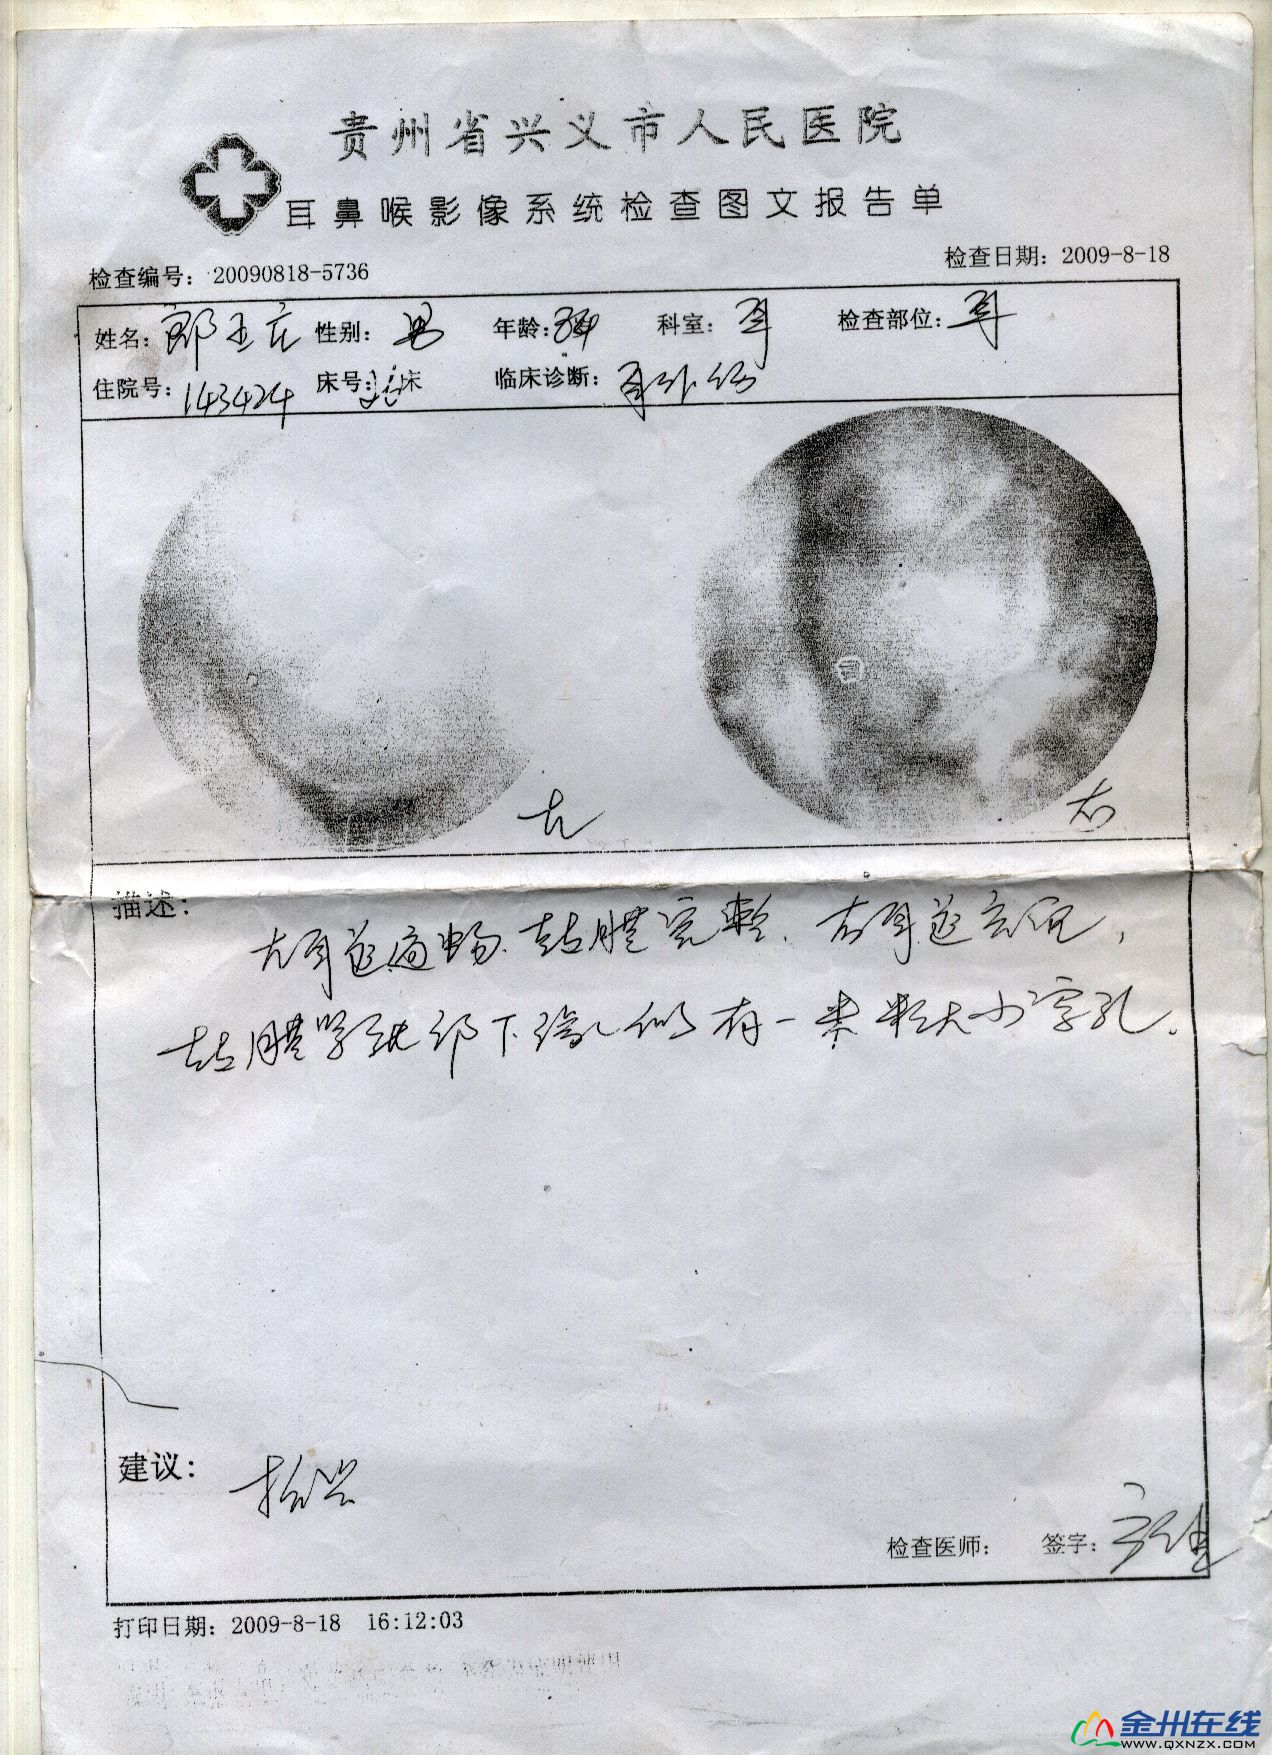 贵州省兴义市人民医院
耳鼻喉影像系统检查图文报告单
检查编号: 20090818-5736 检查日期: 2009-8-18
姓名: 郎玉 性别: 男 年龄: 科室: 耳 检查部位: 耳
住院号: 143424 床号: 床 临床诊断: 耳外伤
左 右
描述:
左耳道通畅、鼓膜完整、右耳道充血,
鼓膜紧张部下缘似有一米粒大小穿孔.
建议:
检查医师: 签字:
打印日期: 2009-8-18 16:12:03
金州在线
WWW.QXNZX.COM